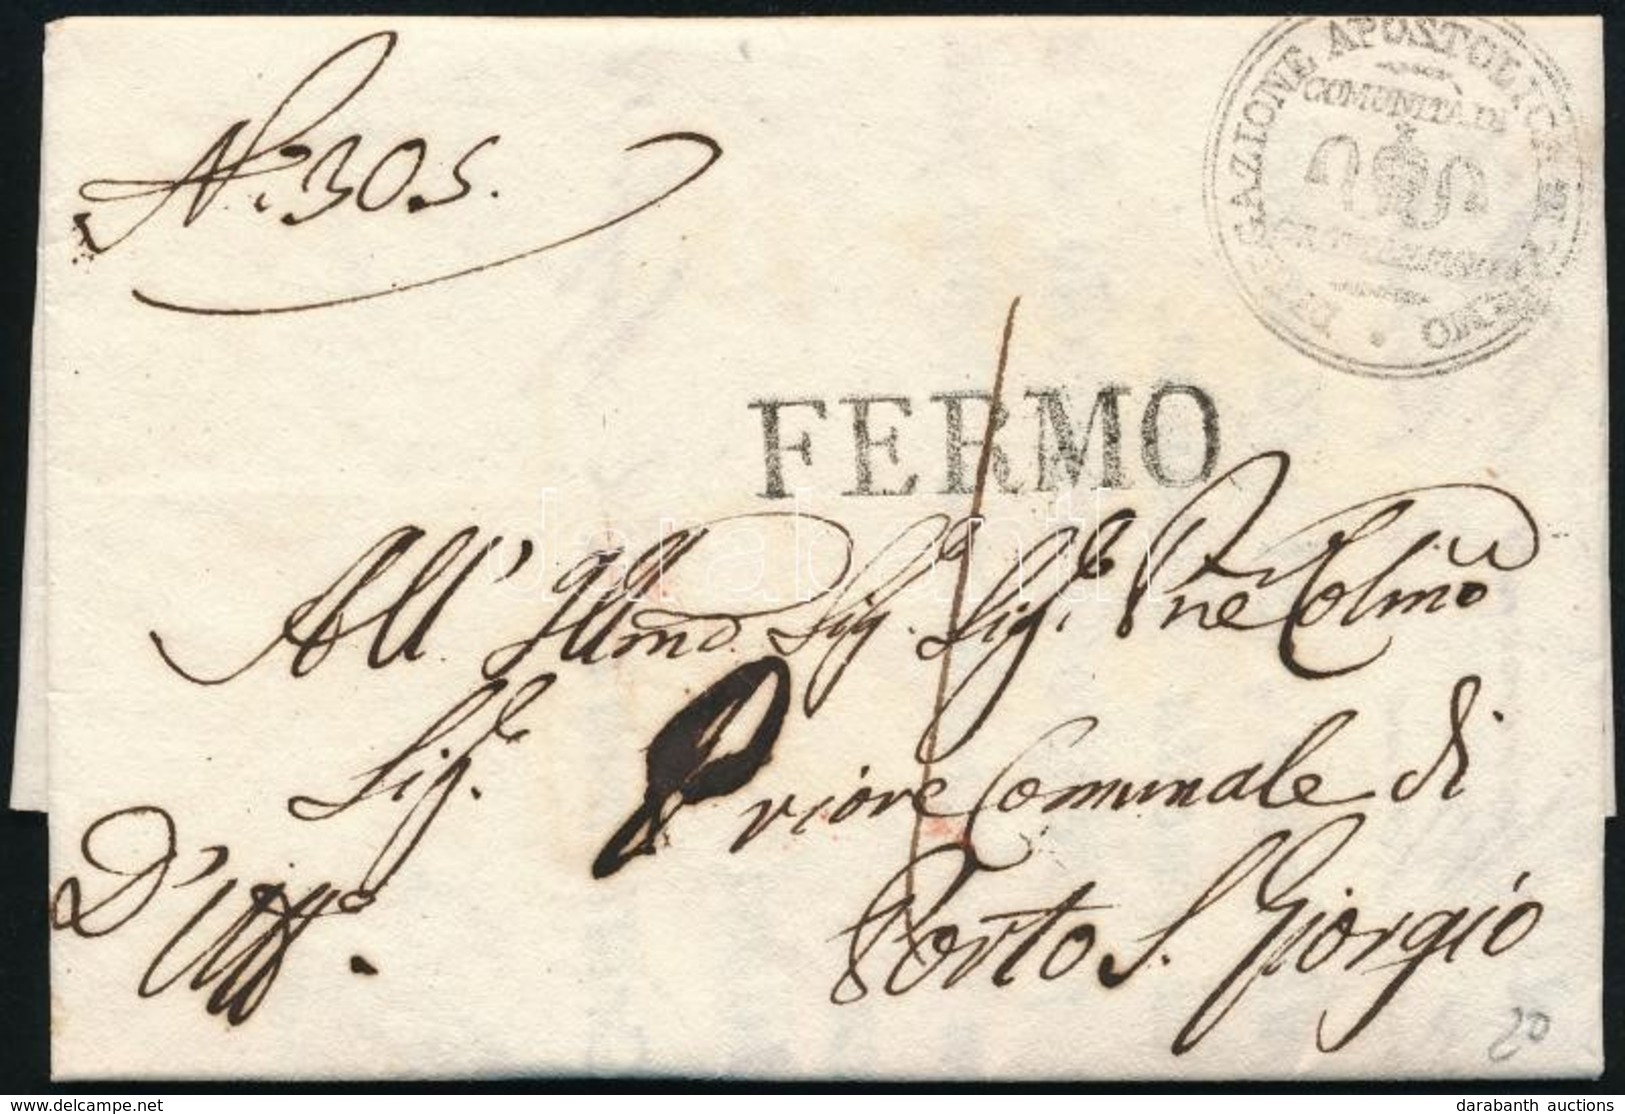 N.° 305.
DELEGAZIONE APOSTOLICA DI FERMO
COMUNITÀ DI
FERMO
All' Illmo Sig.re Sig.e Pne Colmo
Sig.e
Priore Comunale di
D'Uff.o
Porto S. Giorgio
20
darabanth
delcampe.net
darabanth auctions